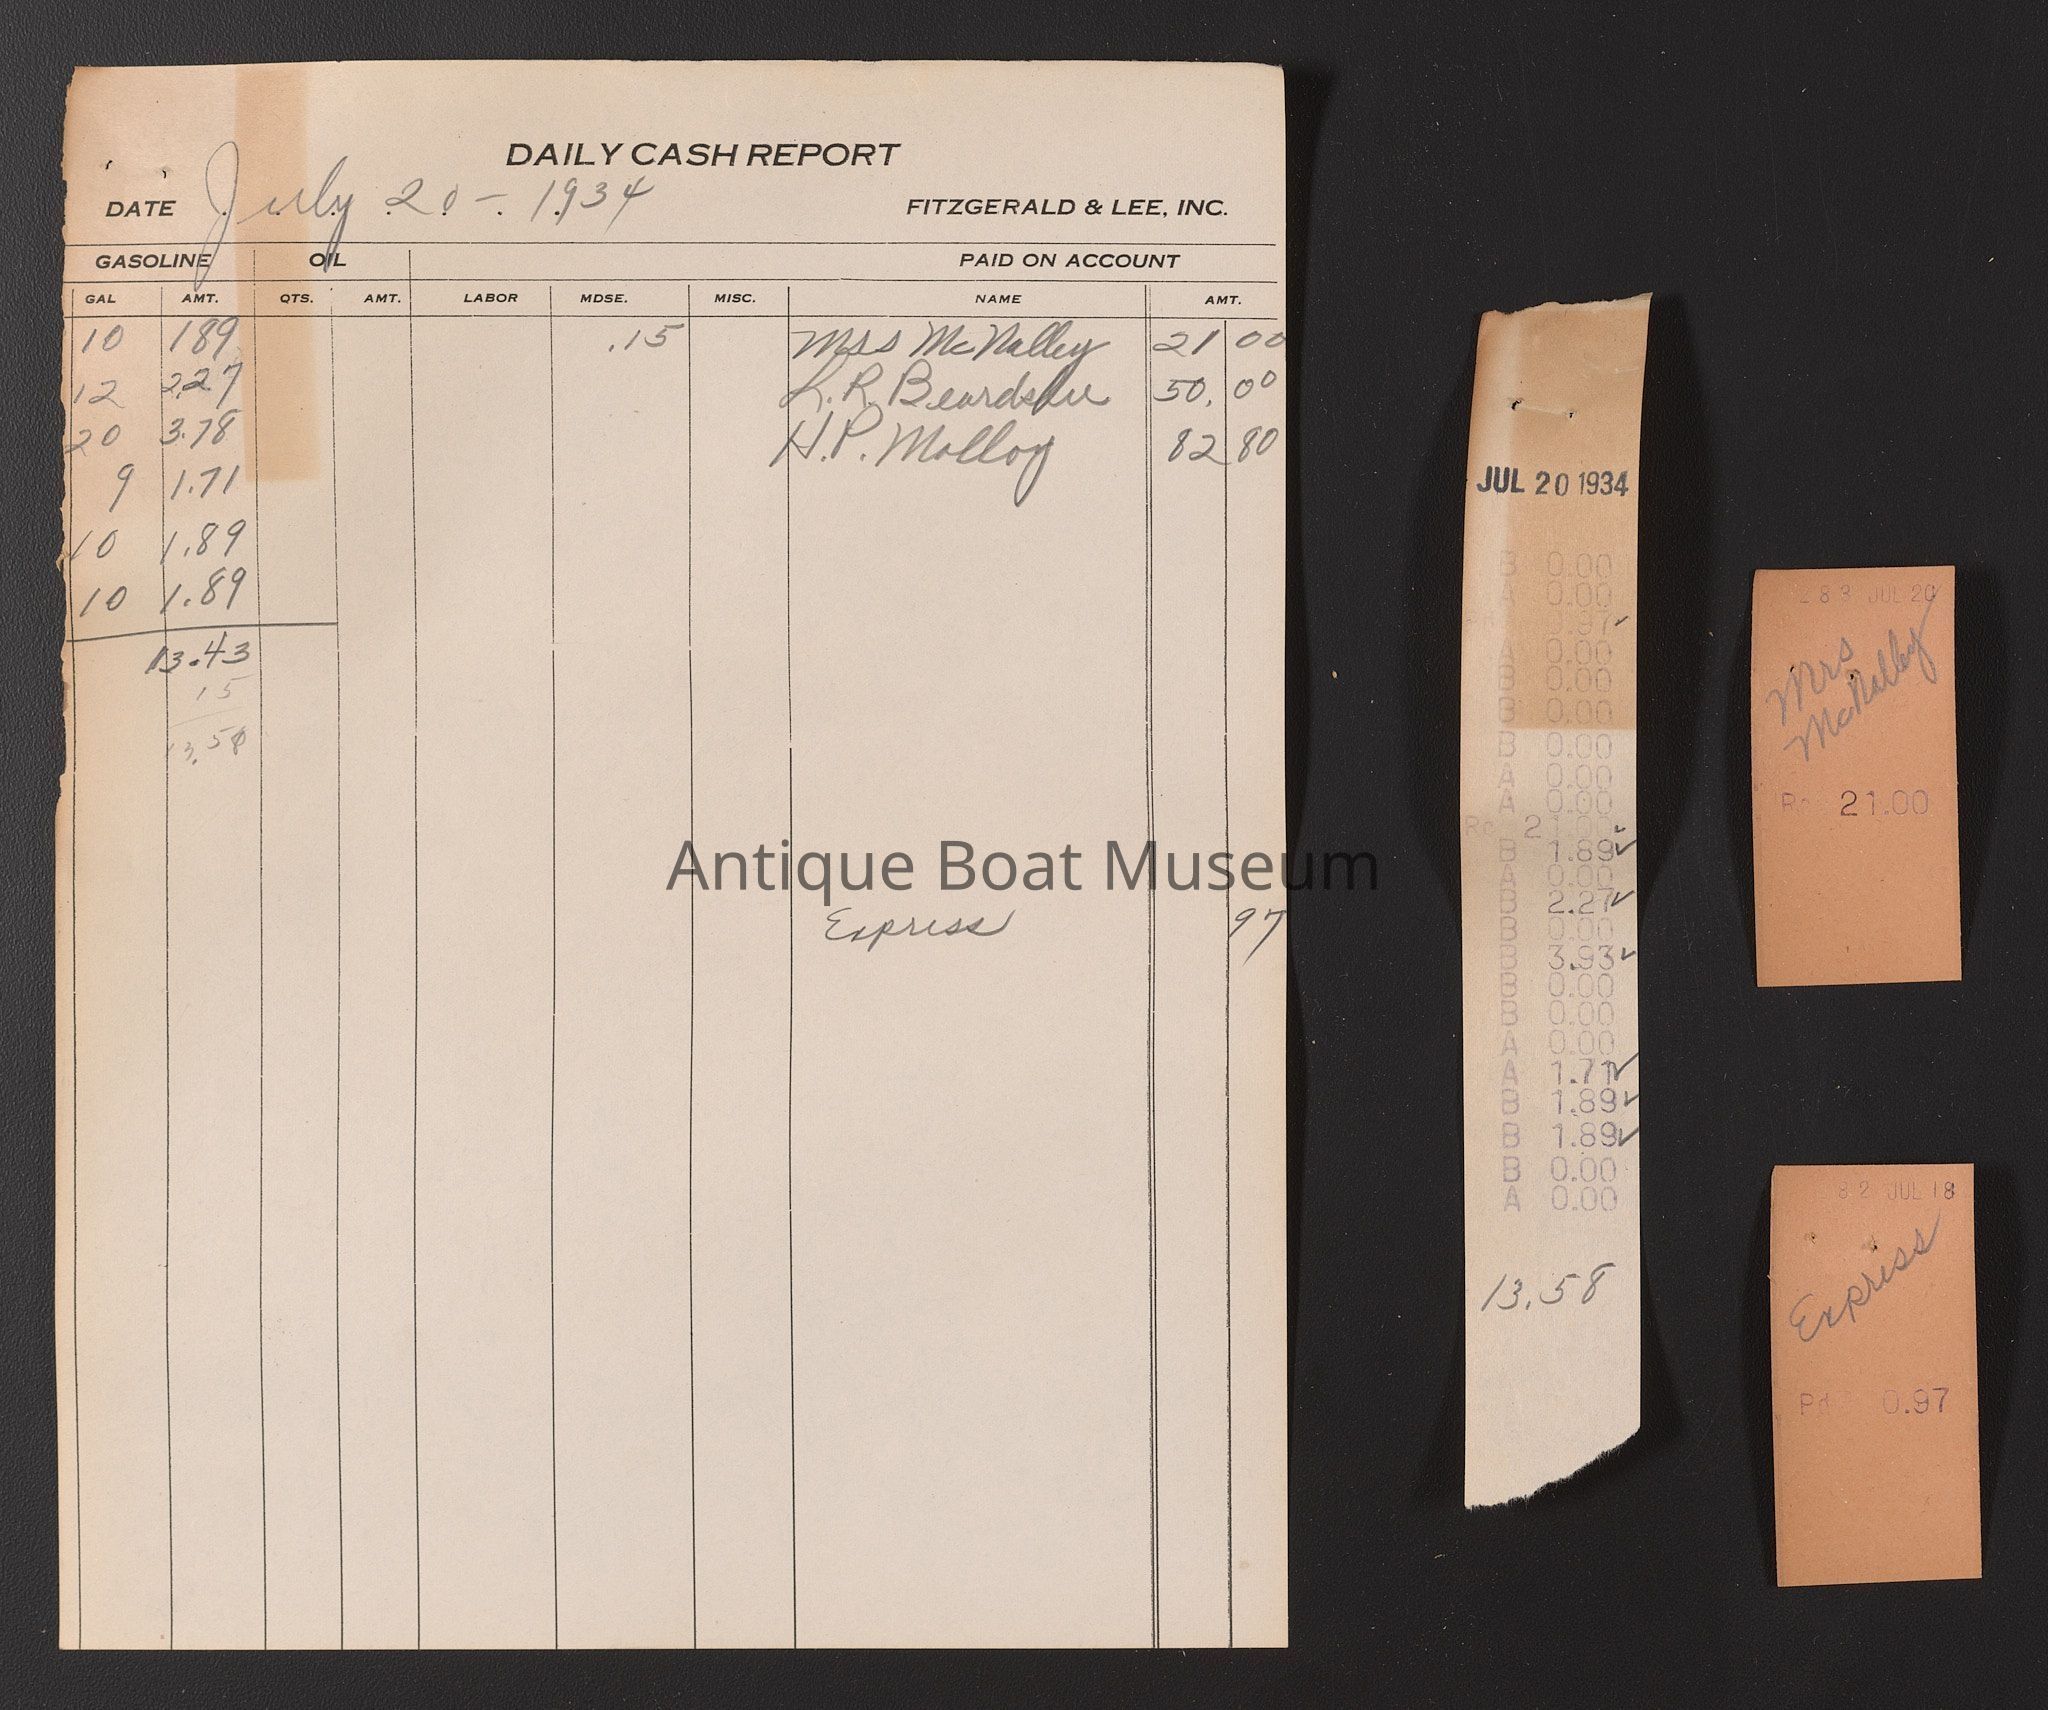 DAILY CASH REPORT
DATE July 20 - 1934 FITZGERALD & LEE, INC.
GASOLINE OIL PAID ON ACCOUNT
GAL AMT. QTS. AMT. LABOR MDSE. MISC. NAME AMT.
10 189 .15 Mrs McNalley 21 00
12 2.27 L. R. Beardslee 50. 00
20 3.78 H. P. Molloy 82 80
9 1.71
10 1.89
10 1.89
13.43
15
13.58
Antique Boat Museum
Express 97
JUL 20 1934
B 0.00
A 0.00
0.97
A 0.00
B 0.00
B 0.00
B 0.00
A 0.00
A 0.00
Rc 2
B 1.89
A 0.00
B 2.27
B 0.00
B 3.93
B 0.00
B 0.00
A 0.00
A 1.71
B 1.89
B 1.89
B 0.00
A 0.00
13.58
283 JUL 20
Mrs
McNalley
Rc 21.00
82 JUL 18
Express
Pd 0.97